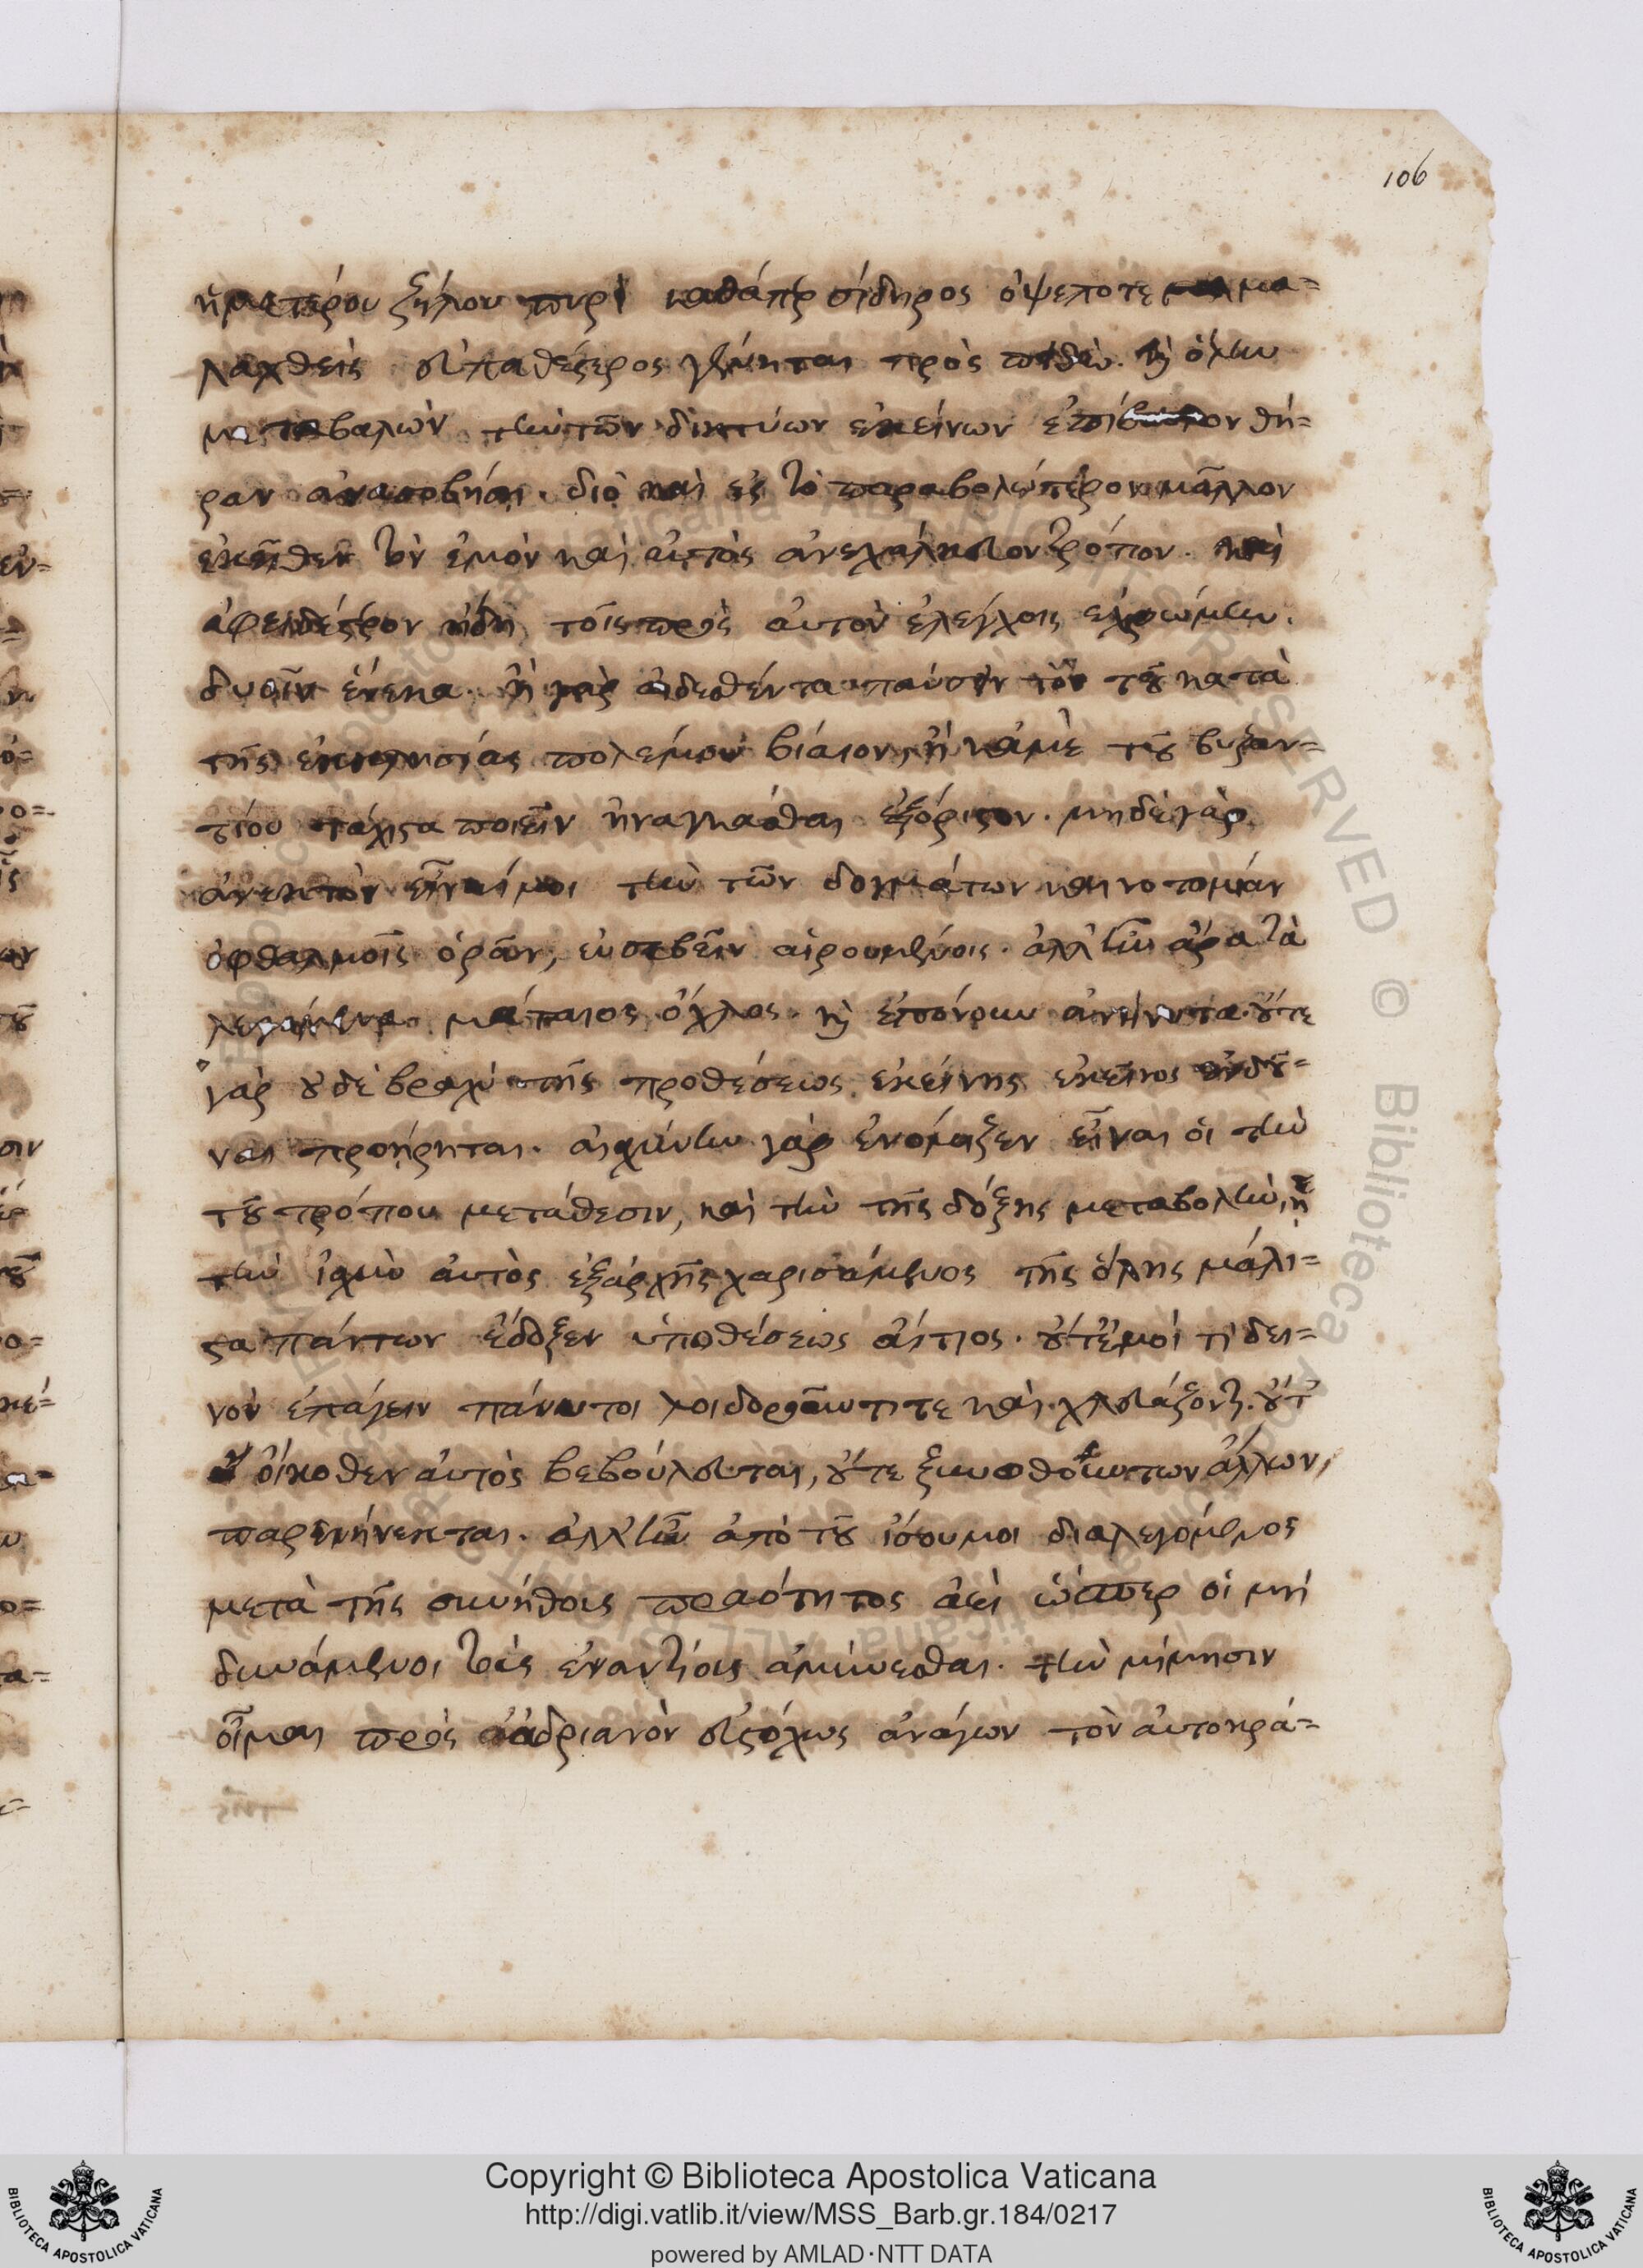 106
ἡμετέρου ζήλου πυρὶ καθάπερ σίδηρος ὀψέποτε μα=
λαχθεὶς εὐπαθέστερος γένηται πρὸς πειθώ. καὶ ὅλην
μεταβαλὼν τὴν τῶν δικτύων ἐκείνων ἐπίβουλον θή=
ραν ἀνασοβήσῃ. διὸ καὶ ἐς τὸ παραβολώτερον μᾶλλον
ἐκεῖθεν τὸν ἐμὸν καὶ αὐτὸς ἀνεχάλκευον τρόπον. καὶ
ἀφειδέστερον ἤδη τοῖς πρὸς αὐτὸν ἐλέγχοις ἐχρώμην.
δυοῖν ἕνεκα. ἢ γὰρ αἰδεσθέντα παύσειν τὸν τοῦ κατὰ
τῆς ἐκκλησίας πολέμου βίαιον, ἢ κἀμὲ τοῦ βυζαν=
τίου τάχιστα ποιεῖν ἠναγκάσθαι ἐξόριστον. μηδὲ γὰρ
ἀνεκτὸν εἶναί μοι τὴν τῶν δογμάτων καινοτομίαν
ὀφθαλμοῖς ὁρᾶν, εὐσεβεῖν αἱρουμένοις. ἀλλ' ἦν ἄρα τὰ
λεγόμενα μάταιος ὄχλος. καὶ ἐπόνουν ἀνήνυτα. οὔτε
γὰρ οὐδὲ βραχὺ τῆς προθέσεως ἐκείνης ἐκεῖνος ἐνδοῦ=
ναι προῄρηται. αἰσχύνην γὰρ ἐνόμιζεν εἶναι οἱ τὴν
τοῦ τρόπου μετάθεσιν, καὶ τὴν τῆς δόξης μεταβολὴν, ᾗ
τὴν ἰσχὺν αὐτὸς ἐξ ἀρχῆς χαρισάμενος τῆς ὅλης μάλι=
στα πάντων ἔδοξεν ὑποθέσεως αἴτιος. οὔτ' ἐμοί τι δει=
νὸν ἐπάγειν πάνυ τοι λοιδοροῦντι τε καὶ χλευάζοντι. οὔτ'
οἴκοθεν αὐτὸς βεβούλευται, οὔτε ξυνωθούντων ἄλλων,
παρενήνεκται. ἀλλ' ἦν ἀπὸ τοῦ ἴσου μοι διαλεγόμενος
μετὰ τῆς συνήθους πραότητος ἀεὶ ὥσπερ οἱ μὴ
δυνάμενοι τοὺς ἐναντίους ἀμύνεσθαι. τὴν μίμησιν
οἶμαι πρὸς ἀδριανὸν εὐστόχως ἀνάγων τὸν αὐτοκρά=
Copyright © Biblioteca Apostolica Vaticana
http://digi.vatlib.it/view/MSS_Barb.gr.184/0217
powered by AMLAD·NTT DATA